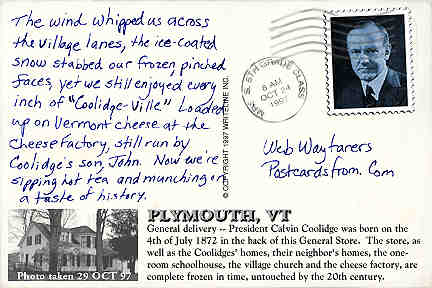 The wind whipped us across
the village lanes, the ice-coated
snow stabbed our frozen, pinched
faces, yet we still enjoyed every
inch of "Coolidge-Ville." Loaded
up on Vermont cheese at the
cheese factory, still run by
Coolidge's son, John. Now we're
sipping hot tea and munching on
a taste of history.
© COPYRIGHT 1997 WRITELINE INC.
MRS. S. 5TH GRADE CLASS
8 AM
OCT 24
1997
Web Wayfarers
Postcardsfrom.Com
Photo taken 29 OCT 97
PLYMOUTH, VT
General delivery -- President Calvin Coolidge was born on the
4th of July 1872 in the back of this General Store. The store, as
well as the Coolidges' homes, their neighbor's homes, the one-
room schoolhouse, the village church and the cheese factory, are
complete frozen in time, untouched by the 20th century.